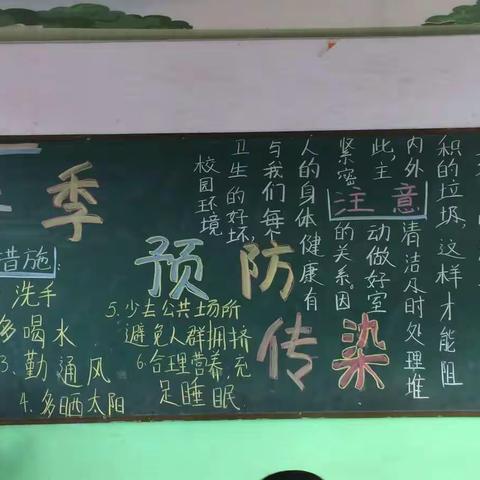 季
预防
传染
措施:
洗手
多喝水
3、勤通风
4、多晒太阳
5.少去公共场所
避免人群拥挤
6.合理营养,充
足睡眠.
注意
校园环境
卫生的好坏,
与我们每个
人的身体健康有
紧密的关系。因
此,主动做好室
内外清洁及时处理堆
积的垃圾,这样才能阻